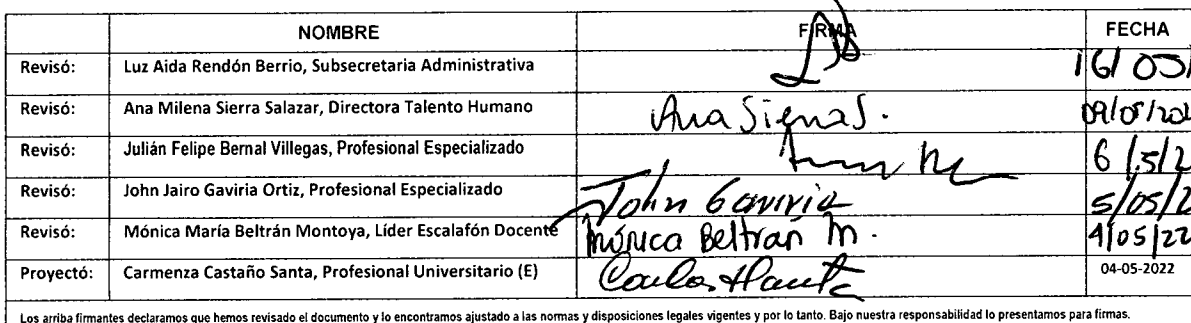 NOMBRE FIRMA FECHA
Revisó: Luz Aida Rendón Berrio, Subsecretaria Administrativa 16/05/
Revisó: Ana Milena Sierra Salazar, Directora Talento Humano Ana Sierra S. 09/05/202
Revisó: Julián Felipe Bernal Villegas, Profesional Especializado 6/5/2
Revisó: John Jairo Gaviria Ortiz, Profesional Especializado John Gaviria 5/05/2
Revisó: Mónica María Beltrán Montoya, Líder Escalafón Docente Mónica Beltrán M. 4/05/22
Proyectó: Carmenza Castaño Santa, Profesional Universitario (E) 04-05-2022
Los arriba firmantes declaramos que hemos revisado el documento y lo encontramos ajustado a las normas y disposiciones legales vigentes y por lo tanto. Bajo nuestra responsabilidad lo presentamos para firmas.